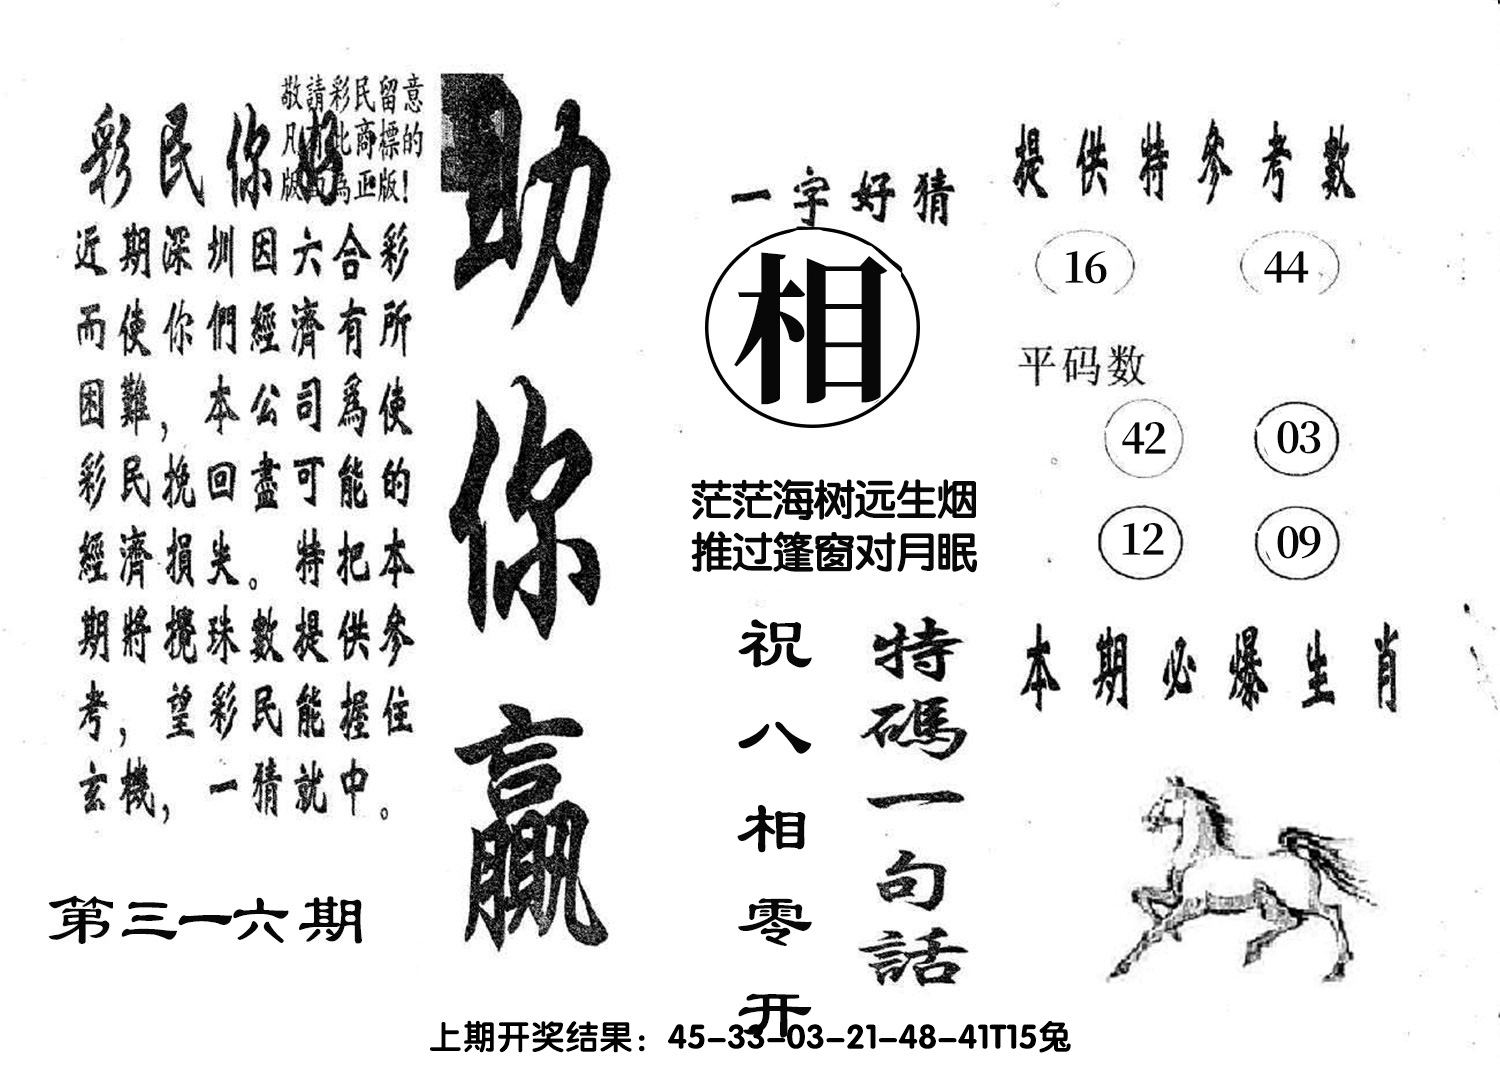 敬請彩民留意
凡有此商標的
版面為正版!
彩民你好
近期深圳因六合彩
而使你們經濟有所
困難,本公司爲使
彩民挽回盡可能的
經濟損失。特把本
期將攪珠數提供參
考,望彩民能握住
玄機,一猜就中。
第三一六期
助你贏
一字好猜
相
茫茫海树远生烟
推过篷窗对月眠
特碼一句話
祝八相零开
提供特參考數
16 44
平码数
42 03
12 09
本期必爆生肖
上期开奖结果：45-33-03-21-48-41T15兔